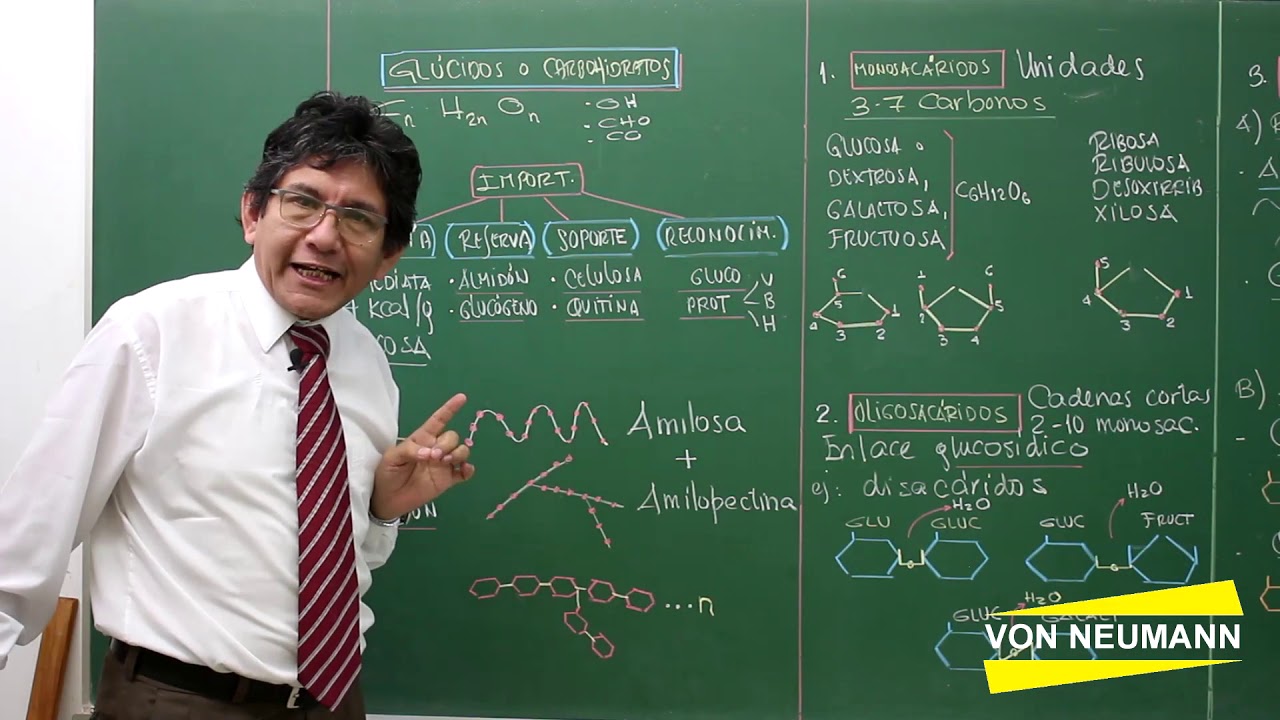 GLÚCIDOS o CARBOHIDRATOS
Cn H2n On
· OH
· CHO
· CO
IMPORT.
RESERVA
SOPORTE
RECONOCIM.
· ALMIDÓN
· GLUCÓGENO
· CELULOSA
· QUITINA
GLUCO
PROT
V
B
H
kcal/g
Amilosa
+
Amilopectina
...n
1. MONOSACÁRIDOS Unidades
3-7 Carbonos
GLUCOSA o
DEXTROSA,
GALACTOSA,
FRUCTUOSA
C6H12O6
RIBOSA
RIBULOSA
DESOXIRRIB
XILOSA
6
5
4
3
2
1
6
2
5
3
4
5
4
1
3
2
2. OLIGOSACÁRIDOS Cadenas cortas
2-10 monosac.
Enlace glucosídico
ej: disacáridos
H2O
GLU
GLUC
H2O
GLUC
FRUCT
H2O
GLUC
3.
A)
B)
VON NEUMANN